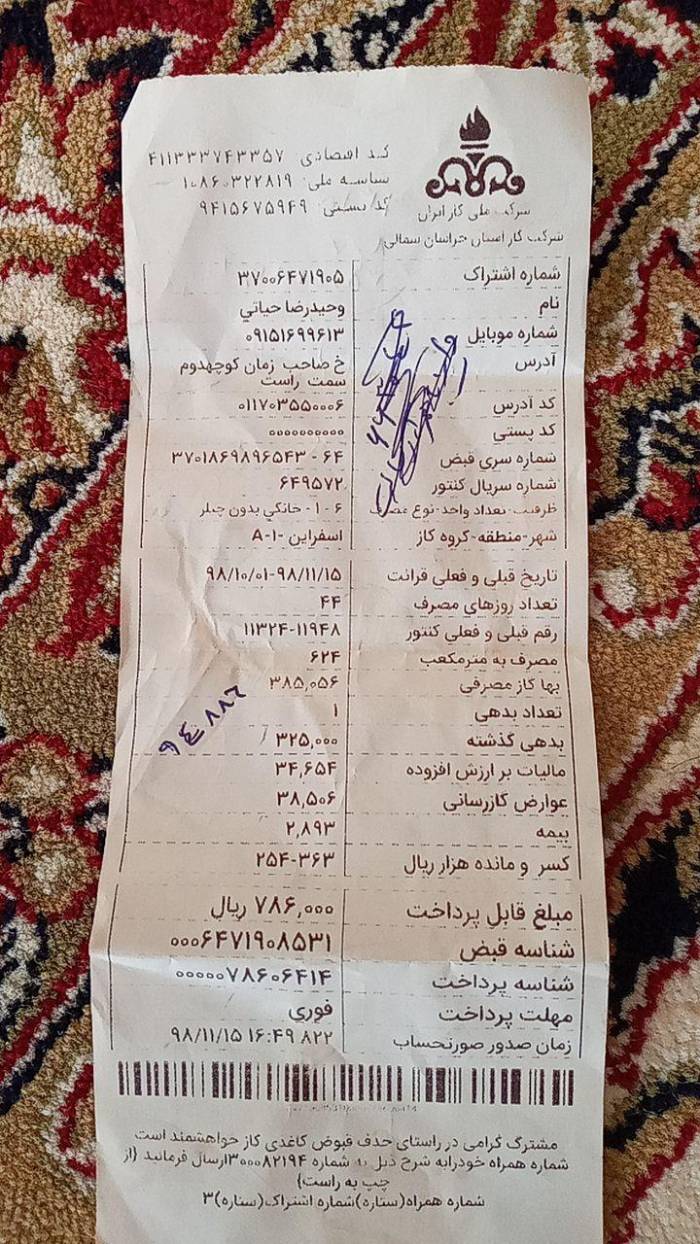 شرکت ملی گاز ایران
شرکت گاز استان خراسان شمالی
کد اقتصادی: ۴۱۱۳۳۳۷۴۳۳۵۷
شناسه ملی: ۱۰۸۶۰۳۲۲۸۱۹
کد پستی: ۹۴۱۵۶۷۵۹۴۹
شماره اشتراک ۳۷۰۰۶۴۷۱۹۰۵
نام وحیدرضا حیاتي
شماره موبایل ۰۹۱۵۱۶۹۹۶۱۳
آدرس خ صاحب زمان کوچهدوم
سمت راست
کد آدرس ۰۱۱۷۰۳۵۵۰۰۰۶
کد پستی ۰۰۰۰۰۰۰۰۰۰
شماره سری قبض ۶۴ - ۳۷۰۱۸۶۹۸۹۶۵۴۳
شماره سریال کنتور ۶۴۹۵۷۲
ظرفیت-تعداد واحد-نوع مصرف ۶ - ۱ - خانگي بدون چیلر
شهر-منطقه-گروه گاز اسفراین -۱-A
تاریخ قبلی و فعلی قرائت ۹۸/۱۰/۰۱-۹۸/۱۱/۱۵
تعداد روزهای مصرف ۴۴
رقم قبلی و فعلی کنتور ۱۱۳۲۴-۱۱۹۴۸
مصرف به مترمکعب ۶۲۴
بها گاز مصرفی ۳۸۵,۰۵۶
تعداد بدهی ۱
بدهی گذشته ۳۲۵,۰۰۰
مالیات بر ارزش افزوده ۳۴,۶۵۴
عوارض گازرسانی ۳۸,۵۰۶
بیمه ۲,۸۹۳
کسر و مانده هزار ریال ۲۵۴-۳۶۳
مبلغ قابل پرداخت ۷۸۶,۰۰۰ ریال
شناسه قبض ۰۰۰۶۴۷۱۹۰۸۵۳۱
شناسه پرداخت ۰۰۰۰۰۷۸۶۰۶۴۱۴
مهلت پرداخت فوری
زمان صدور صورتحساب ۹۸/۱۱/۱۵ ۱۶:۴۹ ۸۲۲
مشترک گرامی در راستای حذف قبوض کاغذی گاز خواهشمند است
شماره همراه خودرابه شرح ذیل به شماره ۳۰۰۰۸۲۱۹۴ارسال فرمائید (از
چپ به راست)
شماره همراه(ستاره)شماره اشتراک(ستاره)۳